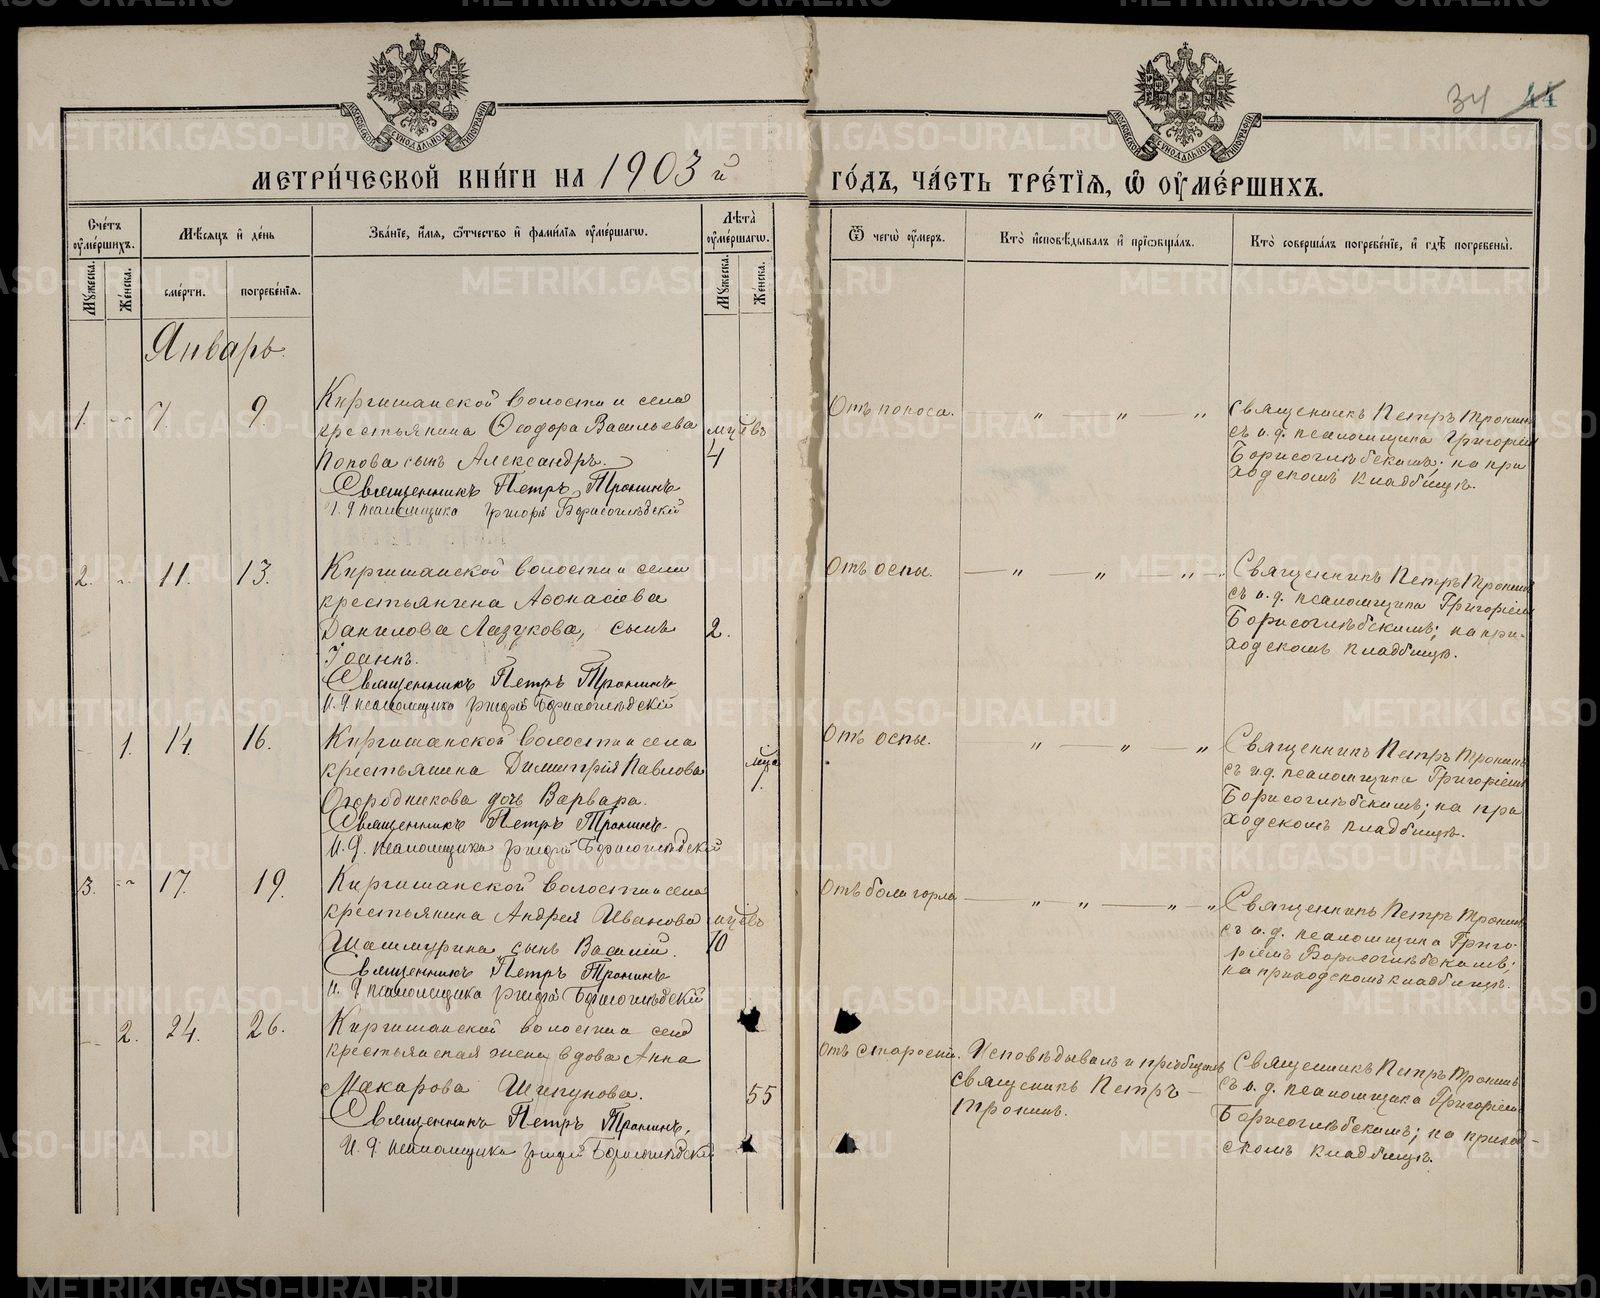 34 44
МЕТРИ́ЧЕСКОЙ КНИ́ГИ НА 1903 й ГО́ДЪ, ЧА́СТЬ ТРЕ́ТІѦ, Ѡ҆ ОУ҆МЕ́РШИХЪ.
Сче́тъ оу҆ме́ршихъ.
Мꙋ́жеска.
Же́нска.
Мѣ́сѧцъ и҆ де́нь
сме́рти.
погребе́нїѧ.
Зва́нїе, и҆́мѧ, ѻ҆́тчество и҆ фами́лїѧ оу҆ме́ршагѡ.
Лѣ́та оу҆ме́ршагѡ.
Мꙋ́жеска.
Же́нска.
Ѿ чегѡ̀ оу҆́меръ.
Кто̀ и҆сповѣ́дывалъ и҆ прїѡбща́лъ.
Кто̀ соверша́лъ погребе́нїе, и҆ гдѣ̀ погребены̀.
Январь.
1. -"- 7. 9.
Киргишанской волости и села
крестьянина Ѳеодора Васильева
Попова сынъ Александръ.
мцевъ
4
Священникъ Петръ Тронинъ
И. д псаломщика Григорій Борисоглѣбскій
Отъ поноса. — " — " — "
Священникъ Петръ Тронинъ
съ и. д. псаломщика Григоріем
Борисоглѣбскимъ; на при
ходскомъ кладбищѣ.
2. -"- 11. 13.
Киргишанской волости и села
крестьянина Аѳонасіева
Данилова Лазукова, сынъ
Іоаннъ.
2.
Священникъ Петръ Тронинъ
И. д псаломщика Григорій Борисоглѣбскій
Отъ оспы. — " — " — "
Священникъ Петръ Тронинъ
съ и. д. псаломщика Григоріем
Борисоглѣбскимъ; на при-
ходскомъ кладбищѣ.
- 1. 14. 16.
Киргишанской волости и села
крестьянина Димитрія Павлова
Огородникова дочь Варвара.
мца
1.
Священникъ Петръ Тронинъ
И. д. псаломщика Григорій Борисоглѣбскій
Отъ оспы. " — " — "
Священникъ Петръ Тронинъ
съ и д. псаломщика Григоріемъ
Борисоглѣбскимъ; на при
ходскомъ кладбищѣ.
3. -"- 17. 19.
Киргишанской волости и села
крестьянина Андрея Иванова
Шашмурина сынъ Василій.
мцевъ
10
Священникъ Петръ Тронинъ
И. д псаломщика Григорій Борисоглѣбскій
Отъ боли горла — " — " — " — "
Священникъ Петръ Тронинъ
съ и. д. псаломщика Григо-
ріемъ Борисоглѣбскимъ;
на приходскомъ кладбищѣ.
- 2. 24. 26.
Киргишанской волости и села
крестьянская жена вдова Анна
Макарова Шипунова.
55
Священникъ Петръ Тронинъ.
И. д псаломщика Григорій Борисоглѣбскій
Отъ старости.
Исповѣдывалъ и пріобщалъ
священикъ Петръ —
Тронинъ.
Священникъ Петръ Тронинъ
съ и. д. псаломщика Григоріем
Борисоглѣбскимъ; на приход-
скомъ кладбищѣ.